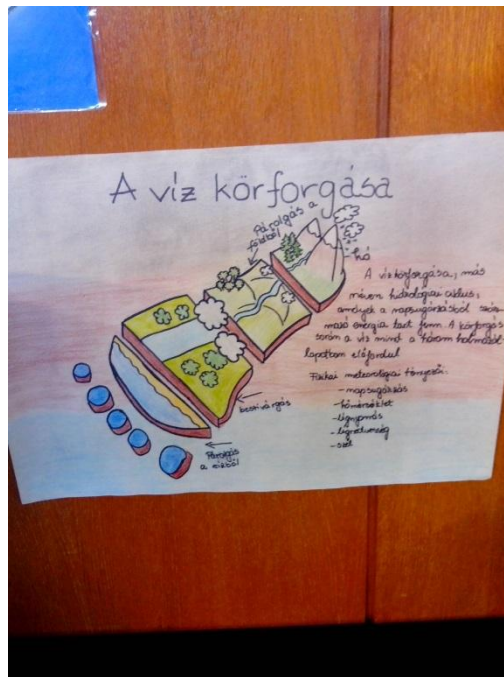 A víz körforgása
Párolgás a
földből
hó
A víz körforgása, más
néven hidrológiai ciklus,
amelyek a napsugárzásból szár-
mazó energia tart fenn. A körforgás
során a víz mind a három halmazál-
lapotban előfordul
Fizikai meteorológiai tényezői:
- napsugárzás
- hőmérséklet
- légnyomás
- légnedvesség
- szél
beszivárgás
Párolgás
a vízből